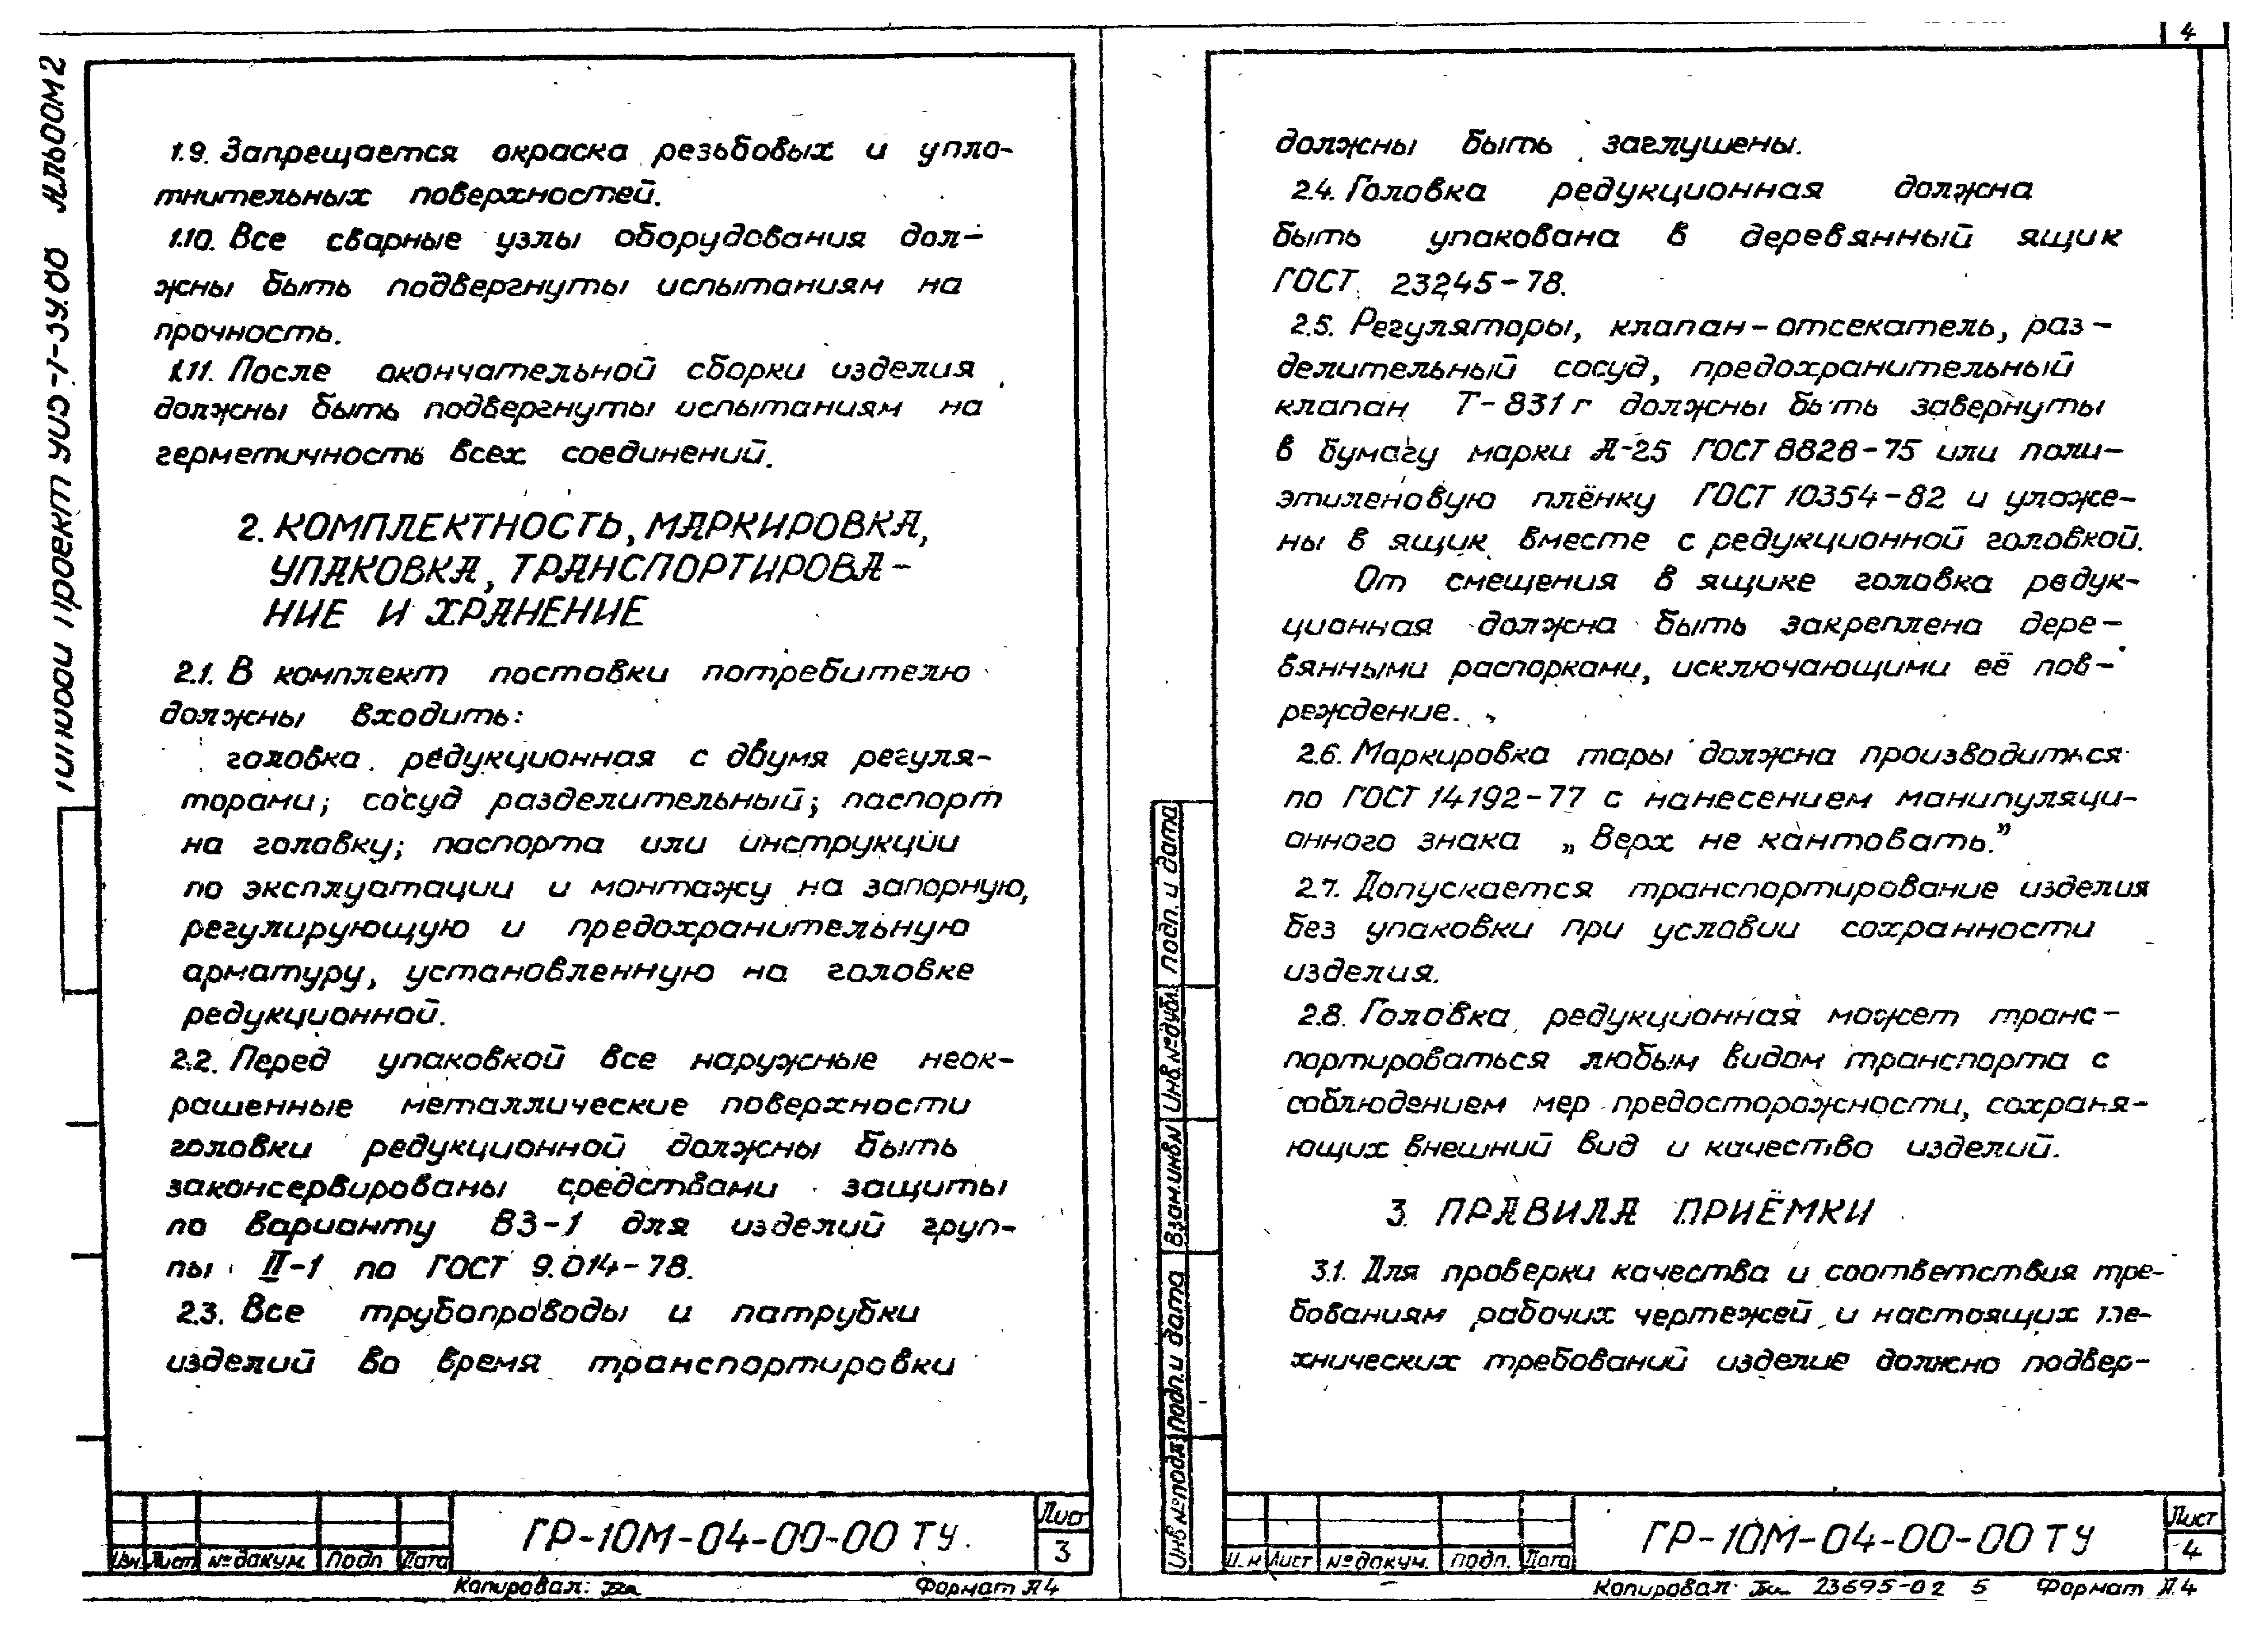 4
Альбом 2
1.9. Запрещается окраска резьбовых и упло-
тнительных поверхностей.
1.10. Все сварные узлы оборудования дол-
жны быть подвергнуты испытаниям на
прочность.
1.11. После окончательной сборки изделия
должны быть подвергнуты испытаниям на
герметичность всех соединений.
2. КОМПЛЕКТНОСТЬ, МАРКИРОВКА,
УПАКОВКА, ТРАНСПОРТИРОВА-
НИЕ И ХРАНЕНИЕ
2.1. В комплект поставки потребителю
должны входить:
головка редукционная с двумя регуля-
торами; сосуд разделительный; паспорт
на головку; паспорта или инструкции
по эксплуатации и монтажу на запорную,
регулирующую и предохранительную
арматуру, установленную на головке
редукционной.
2.2. Перед упаковкой все наружные неок-
рашенные металлические поверхности
головки редукционной должны быть
законсервированы средствами защиты
по варианту ВЗ-1 для изделий груп-
пы II-1 по ГОСТ 9.014-78.
2.3. Все трубопроводы и патрубки
изделий во время транспортировки
Изм. Лист № докум. Подп Дата
ГР-10М-04-00-00 ТУ.
Лист
3
Копировал:
Формат А4
должны быть заглушены.
2.4. Головка редукционная должна
быть упакована в деревянный ящик
ГОСТ 23245-78.
2.5. Регуляторы, клапан-отсекатель, раз-
делительный сосуд, предохранительный
клапан Т-831г должны быть завернуты
в бумагу марки А-25 ГОСТ 8828-75 или поли-
этиленовую плёнку ГОСТ 10354-82 и уложе-
ны в ящик вместе с редукционной головкой.
От смещения в ящике головка редук-
ционная должна быть закреплена дере-
вянными распорками, исключающими её пов-
реждение.
2.6. Маркировка тары должна производиться
по ГОСТ 14192-77 с нанесением манипуляци-
онного знака „Верх не кантовать."
2.7. Допускается транспортирование изделия
без упаковки при условии сохранности
изделия.
2.8. Головка редукционная может транс-
портироваться любым видом транспорта с
соблюдением мер предосторожности, сохраня-
ющих внешний вид и качество изделий.
3. ПРАВИЛА ПРИЁМКИ
3.1. Для проверки качества и соответствия тре-
бованиям рабочих чертежей и настоящих те-
хнических требований изделие должно подвер-
Инв № подл. Подп. и дата Взам. инв № Инв. № дубл. подп. и дата
Лист № докум. Подп. Дата
ГР-10М-04-00-00 ТУ
Лист
4
Копировал: 23695-02 5 Формат А4